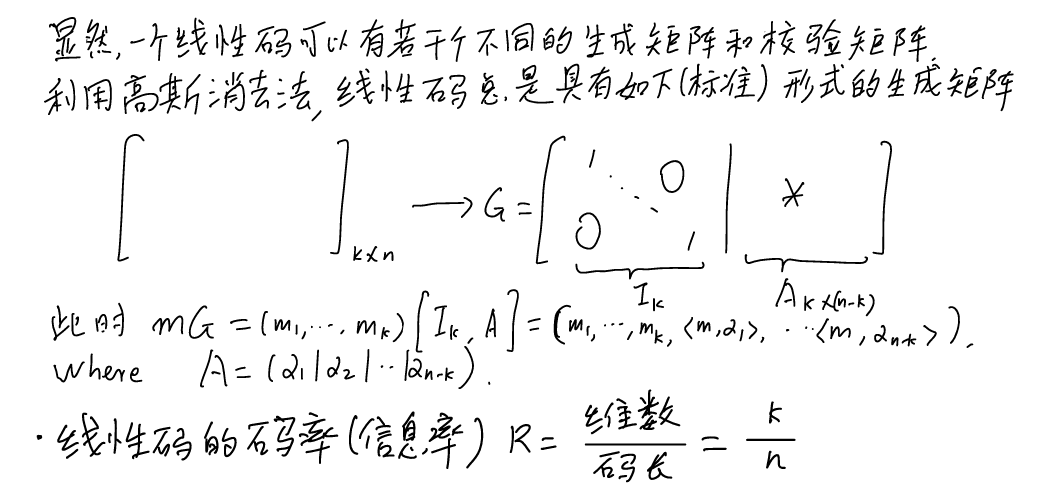 显然,一个线性码可以有若干个不同的生成矩阵和校验矩阵.
利用高斯消去法,线性码总是具有如下(标准)形式的生成矩阵
[ ]_{k×n} → G = [ 1 ⋱ 1 0 0 | * ]
I_k A_{k×(n-k)}
此时 mG = (m₁,…,m_k)[I_k, A] = (m₁,…,m_k, <m,α₁>, …<m,α_{n-k}>).
where A = (α₁|α₂|…|α_{n-k}).
·线性码的码率(信息率) R = 维数/码长 = k/n